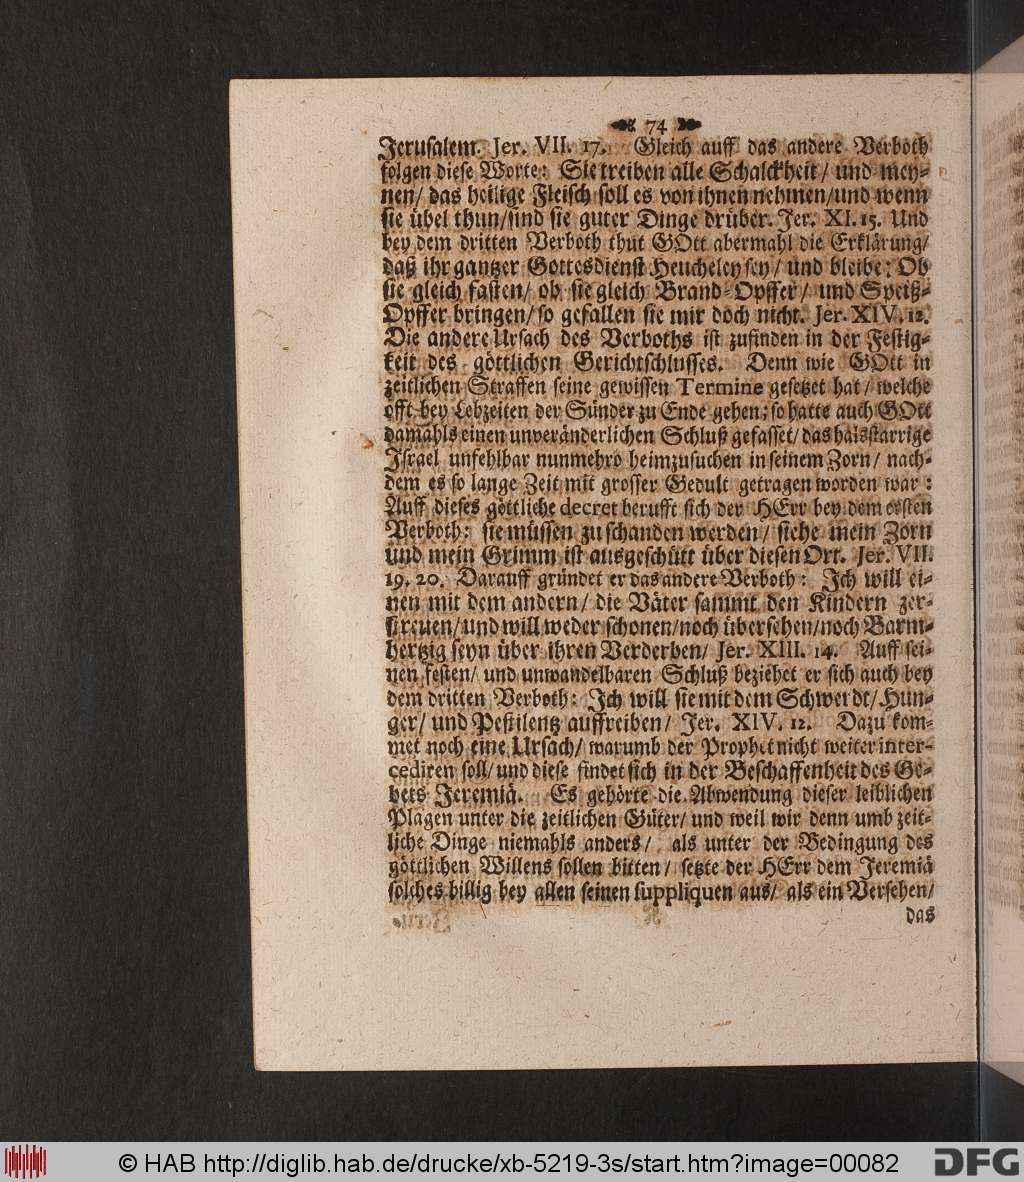 74
Jerusalem. Jer. VII. 17. Gleich auff das andere Verboth
folgen diese Worte: Sie treiben alle Schalckheit / und mey-
nen / das heilige Fleisch soll es von ihnen nehmen / und wenn
sie übel thun / sind sie guter Dinge drüber. Jer. XI. 15. Und
bey dem dritten Verboth thut GOtt abermahl die Erklärung /
daß ihr gantzer Gottesdienst Heucheley sey / und bleibe: Ob
sie gleich fasten / ob sie gleich Brand-Opffer / und Speiß-
Opffer bringen / so gefallen sie mir doch nicht. Jer. XIV. 12.
Die andere Ursach des Verboths ist zufinden in der Festig-
keit des göttlichen Gerichtschlusses. Denn wie GOtt in
zeitlichen Straffen seine gewissen Termine gesetzet hat / welche
offt bey Lebzeiten der Sünder zu Ende gehen; so hatte auch GOtt
damahls einen unveränderlichen Schluß gefasset / das halsstarrige
Israel unfehlbar nunmehro heimzusuchen in seinem Zorn / nach-
dem es so lange Zeit mit grosser Gedult getragen worden war:
Auff dieses göttliche decret berufft sich der HErr bey dem ersten
Verboth: sie müssen zu schanden werden / siehe mein Zorn
und mein Grimm ist ausgeschütt über diesen Ort. Jer. VII.
19. 20. Darauff gründet er das andere Verboth: Ich will ei-
nen mit dem andern / die Väter sammt den Kindern zer-
streuen / und will weder schonen / noch übersehen / noch Barm-
hertzig seyn über ihren Verderben / Jer. XIII. 14. Auff sei-
nen festen / und unwandelbaren Schluß beziehet er sich auch bey
dem dritten Verboth: Ich will sie mit dem Schwerdt / Hun-
ger / und Pestilentz auffreiben / Jer. XIV. 12. Dazu kom-
met noch eine Ursach / warumb der Prophet nicht weiter inter-
cediren soll / und diese findet sich in der Beschaffenheit des Ge-
bets Jeremiä. Es gehörte die Abwendung dieser leiblichen
Plagen unter die zeitlichen Güter / und weil wir denn umb zeit-
liche Dinge niemahls anders / als unter der Bedingung des
göttlichen Willens sollen bitten / setzte der HErr dem Jeremiä
solches billig bey allen seinen suppliquen aus / als ein Versehen /
das
© HAB http://diglib.hab.de/drucke/xb-5219-3s/start.htm?image=00082
DFG